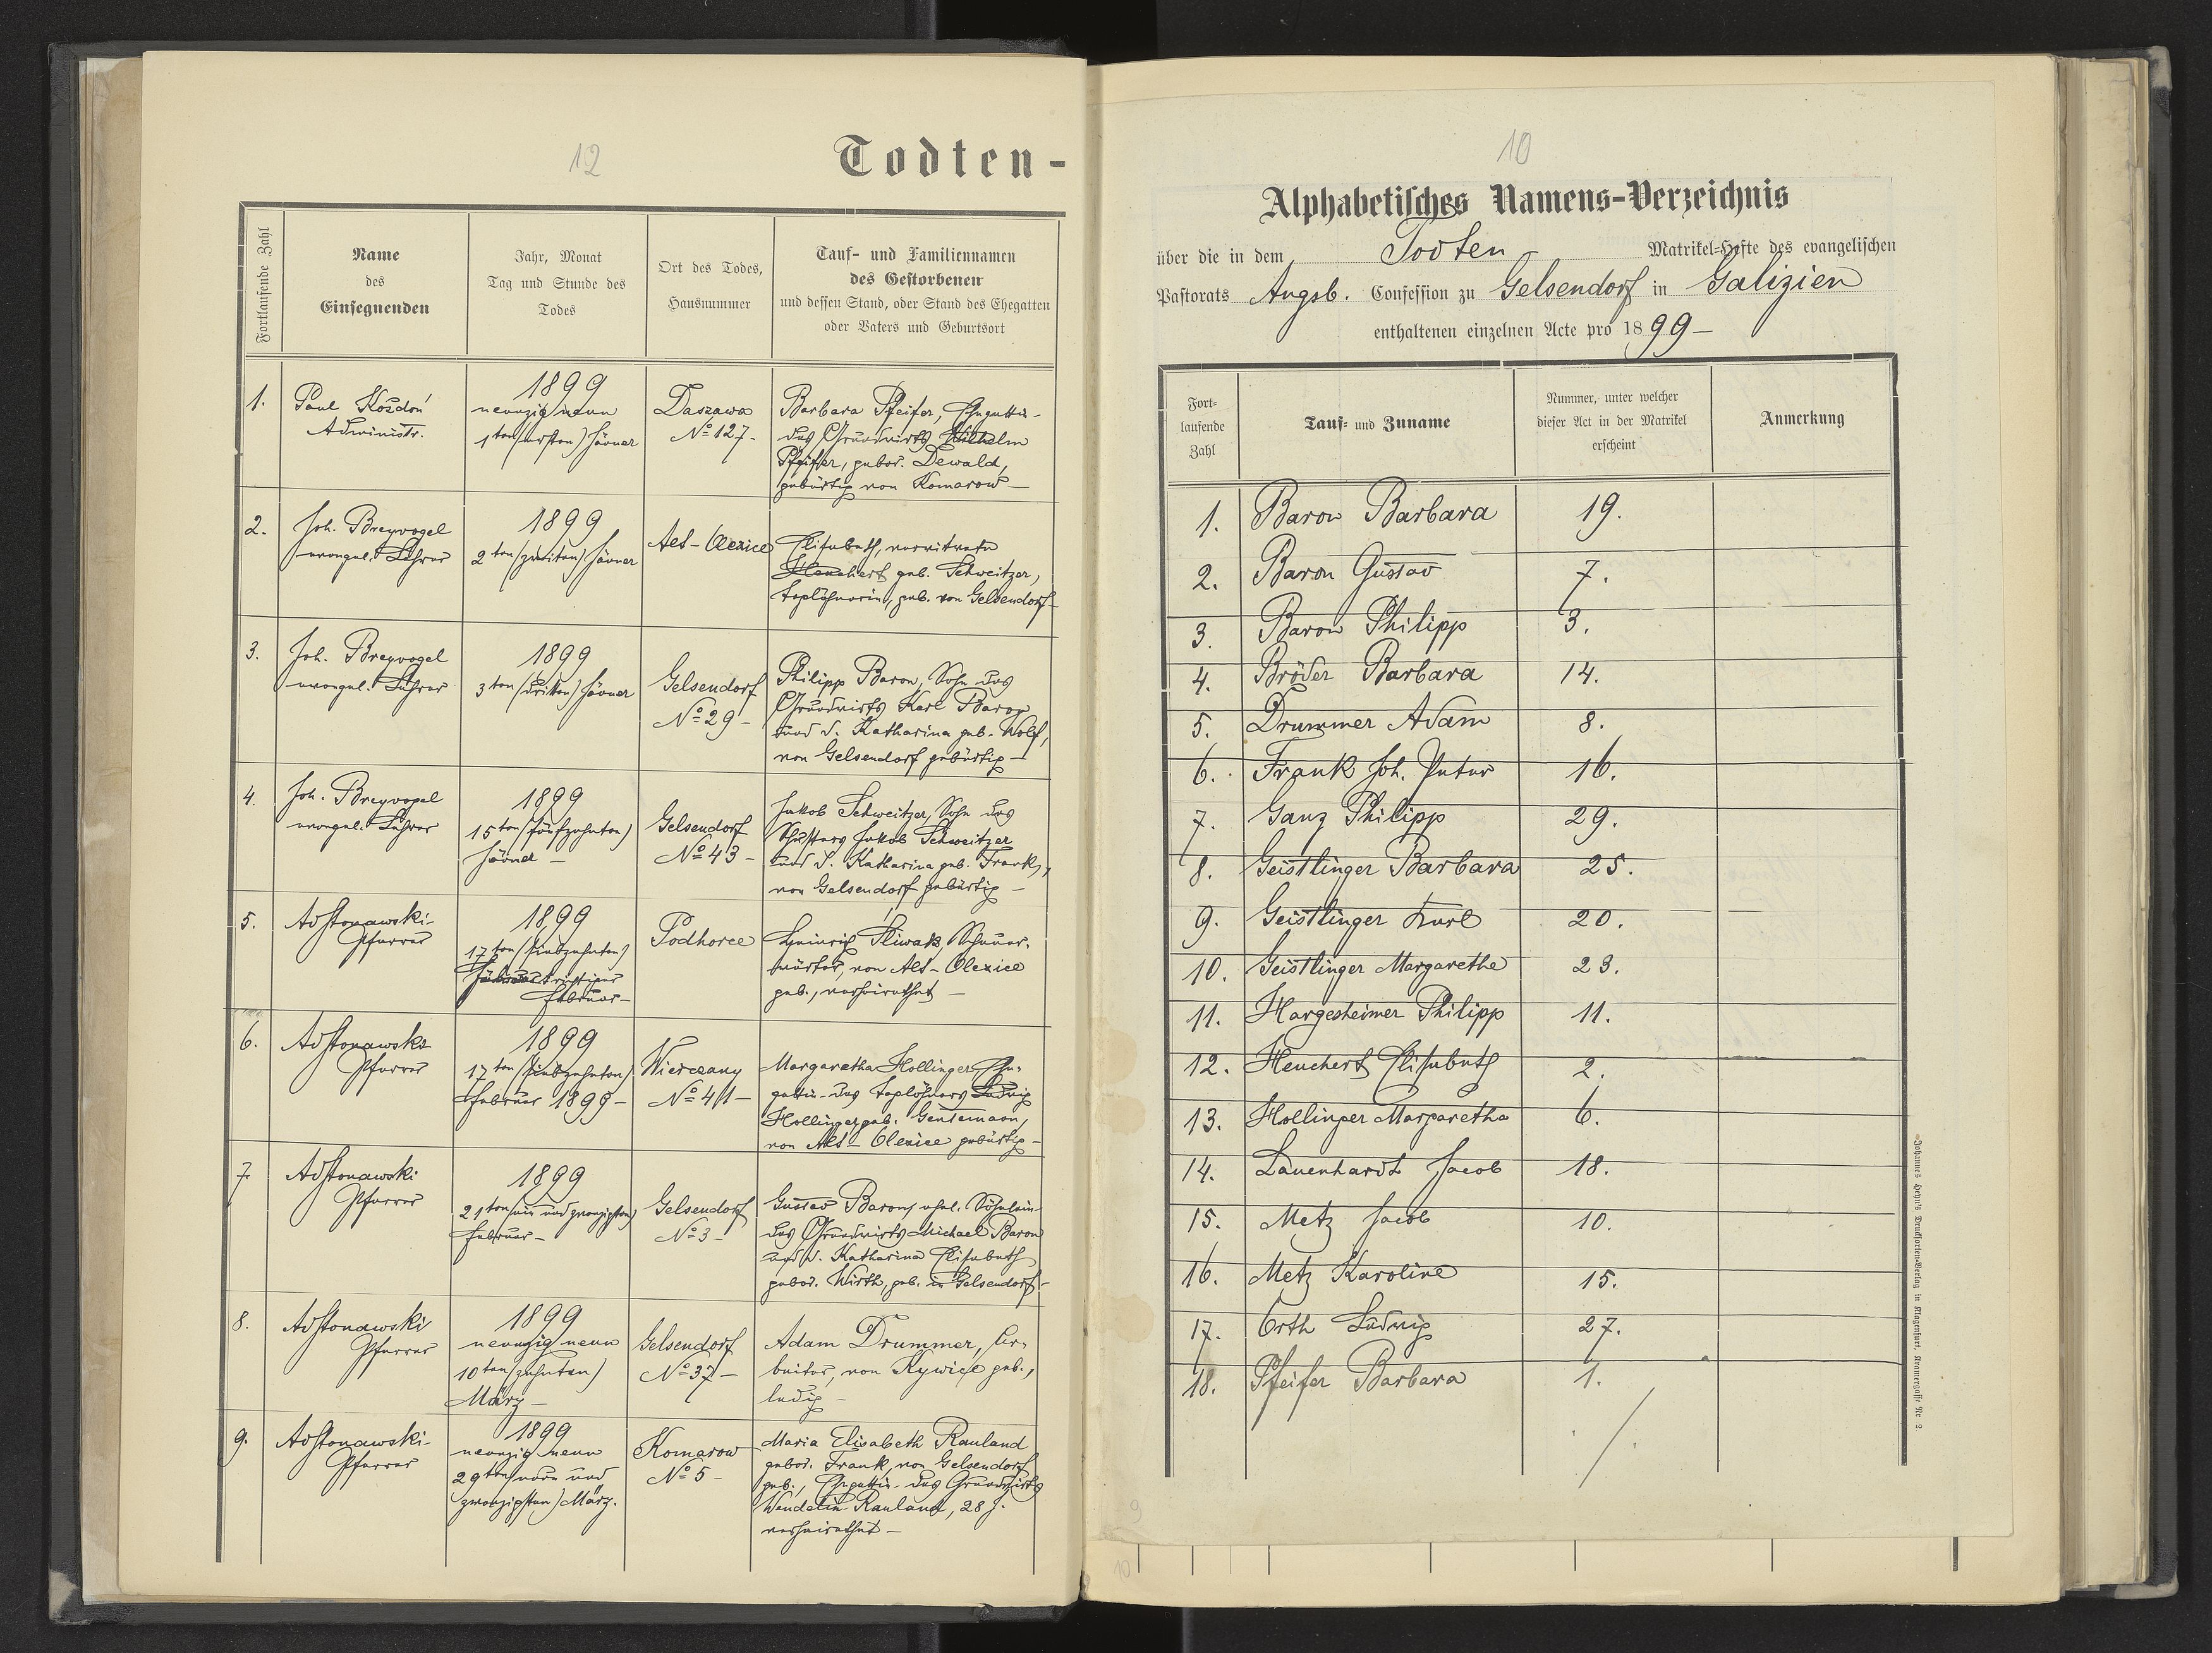 12
Todten-
Fortlaufende Zahl
Name
des
Einsegnenden
Jahr, Monat
Tag und Stunde des
Todes
Ort des Todes,
Hausnummer
Tauf- und Familiennamen
des Gestorbenen
und dessen Stand, oder Stand des Ehegatten
oder Vaters und Geburtsort
1.
Paul Kozdoń
Administr.
1899
neunzig neun
1ten (ersten) Jänner
Daszawa
No 127-
Barbara Pfeifer, Ehegattin
des Grundwirths Wilhelm
Pfeifer, gebor. Dewald,
gebürtig von Komarow-
2.
Joh. Breyvogel
evangel. Lehrer
1899
2ten (zweiten) Jänner
Alt-Olexice
Elisabeth, verwitwete
Heuchert geb. Schweitzer,
Taglöhnerin, geb. von Gelsendorf-
3.
Joh. Breyvogel
evangel. Lehrer
1899
3ten (dritten) Jänner
Gelsendorf
No 29-
Philipp Baron, Sohn des
Grundwirths Karl Baron
und d. Katharina geb. Wolf,
von Gelsendorf gebürtig-
4.
Joh. Breyvogel
evangel. Lehrer
1899
15ten (fünfzehnten)
Jänner-
Gelsendorf
No 43-
Jakob Schweitzer, Sohn des
Schusters Jakob Schweitzer
und d. Katharina geb. Frank,
von Gelsendorf gebürtig-
5.
Adstonawski-
Pfarrer
1899
17ten (siebzehnten)
Jänner richtiger
Februar-
Podhorce
Heinrich Sliwak,
von Alt-Olexice
geb., verheirathet-
6.
Adstonawski
Pfarrer
1899
17ten (siebzehnten)
Februar 1899-
Wierczany
No 41-
Margaretha Hollinger, Ehe-
gattin des Taglöhners Ludwig
Hollinger geb. Gensemann,
von Alt-Olexice gebürtig-
7.
Adstonawski
Pfarrer
1899
21ten (ein und zwanzigsten)
Februar-
Gelsendorf
No 3-
Gustav Baron, ehel. Söhnlein
des Grundwirths Michael Baron
und d. Katharina Elisabeth
gebor. Wirth, geb. in Gelsendorf-
8.
Adstonawski
Pfarrer
1899
neunzig neun
10ten (zehnten)
März-
Gelsendorf
No 37-
Adam Drummer, Ar-
beiter, von Rywice geb.,
ledig-
9.
Adstonawski-
Pfarrer
1899
neunzig neun
29ten (neun und
zwanzigsten) März.
Komarow
No 5-
Maria Elisabeth Rauland
gebor. Frank, von Gelsendorf
geb., Ehegattin des Grundwirths
Wendelin Rauland, 28 J.
verheirathet-
10
Alphabetisches Namens-Verzeichnis
über die in dem Todten- Matrikel-Hefte des evangelischen
Pastorats Augsb. Confession zu Gelsendorf in Galizien
enthaltenen einzelnen Acte pro 1899-
Fort-
laufende
Zahl
Tauf- und Zuname
Nummer, unter welcher
dieser Act in der Matrikel
erscheint
Anmerkung
1. Baron Barbara 19.
2. Baron Gustav 7.
3. Baron Philipp 3.
4. Bröder Barbara 14.
5. Drummer Adam 8.
6. Frank Joh. Peter 16.
7. Ganz Philipp 29.
8. Geistlinger Barbara 25.
9. Geistlinger Karl 20.
10. Geistlinger Margarethe 23.
11. Hargesheimer Philipp 11.
12. Heuchert Elisabeth 2.
13. Hollinger Margaretha 6.
14. Lauenhardt Jacob 18.
15. Metz Jacob 10.
16. Metz Karoline 15.
17. Orth Ludwig 27.
18. Pfeifer Barbara 1.
Johannes Heyn's Drucksorten-Verlag in Klagenfurt, Kramergasse Nr. 2.
9
10